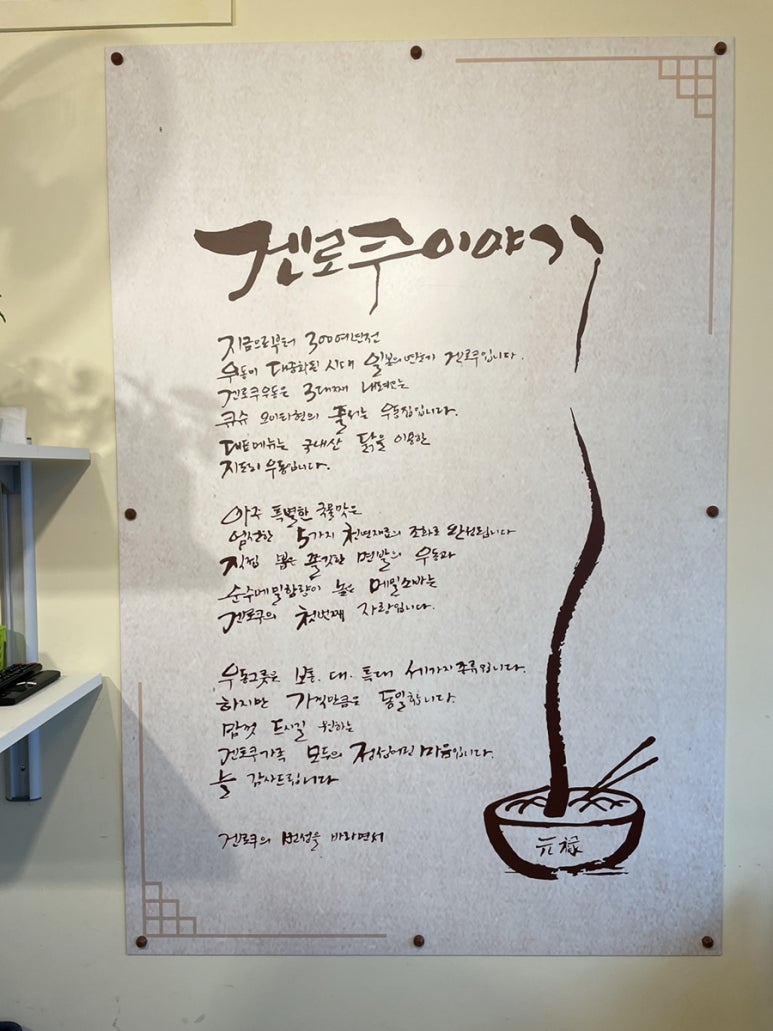 겐로쿠이야기
지금으로부터 300여년전
우동이 대중화된 시대 일본의 연호가 겐로쿠입니다.
겐로쿠우동은 3대째 내려오는
큐슈 오이타현의 줄서는 우동집입니다.
대표메뉴는 국내산 닭을 이용한
지도리 우동입니다.
아주 특별한 국물맛은
엄선한 5가지 천연재료의 조화로 완성됩니다
직접 뽑은 쫄깃한 면발의 우동과
순수메밀함량이 높은 메밀소바는
겐로쿠의 첫번째 자랑입니다.
우동그릇은 보통. 대. 특대 세가지종류입니다.
하지만 가격만큼은 동일합니다.
맘껏 드시길 원하는
겐로쿠가족 모두의 정성어린 마음입니다.
늘 감사드립니다
겐로쿠의 번성을 바라면서
元禄